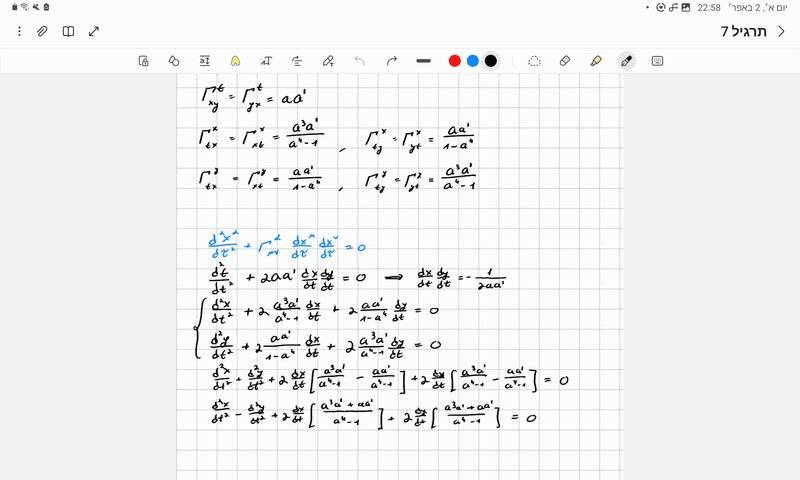 יום א׳, 2 באפר׳ 22:58
תרגיל 7
Γ^t_{xy} = Γ^t_{yx} = aa'
Γ^x_{tx} = Γ^x_{xt} = \frac{a^3a'}{a^4-1} , Γ^x_{ty} = Γ^x_{yt} = \frac{aa'}{1-a^4}
Γ^y_{tx} = Γ^y_{xt} = \frac{aa'}{1-a^4} , Γ^y_{ty} = Γ^y_{yt} = \frac{a^3a'}{a^4-1}
\frac{d^2x^α}{dτ^2} + Γ^α_{μν} \frac{dx^μ}{dτ} \frac{dx^ν}{dτ} = 0
\frac{d^2t}{dt^2} + 2aa' \frac{dx}{dt} \frac{dy}{dt} = 0 → \frac{dx}{dt} \frac{dy}{dt} = - \frac{1}{2aa'}
\frac{d^2x}{dt^2} + 2 \frac{a^3a'}{a^4-1} \frac{dx}{dt} + 2 \frac{aa'}{1-a^4} \frac{dy}{dt} = 0
\frac{d^2y}{dt^2} + 2 \frac{aa'}{1-a^4} \frac{dx}{dt} + 2 \frac{a^3a'}{a^4-1} \frac{dy}{dt} = 0
\frac{d^2x}{dt^2} + \frac{d^2y}{dt^2} + 2 \frac{dx}{dt} [ \frac{a^3a'}{a^4-1} - \frac{aa'}{a^4-1} ] + 2 \frac{dy}{dt} [ \frac{a^3a'}{a^4-1} - \frac{aa'}{a^4-1} ] = 0
\frac{d^2x}{dt^2} - \frac{d^2y}{dt^2} + 2 \frac{dx}{dt} [ \frac{a^3a' + aa'}{a^4-1} ] + 2 \frac{dy}{dt} [ \frac{a^3a' + aa'}{a^4-1} ] = 0